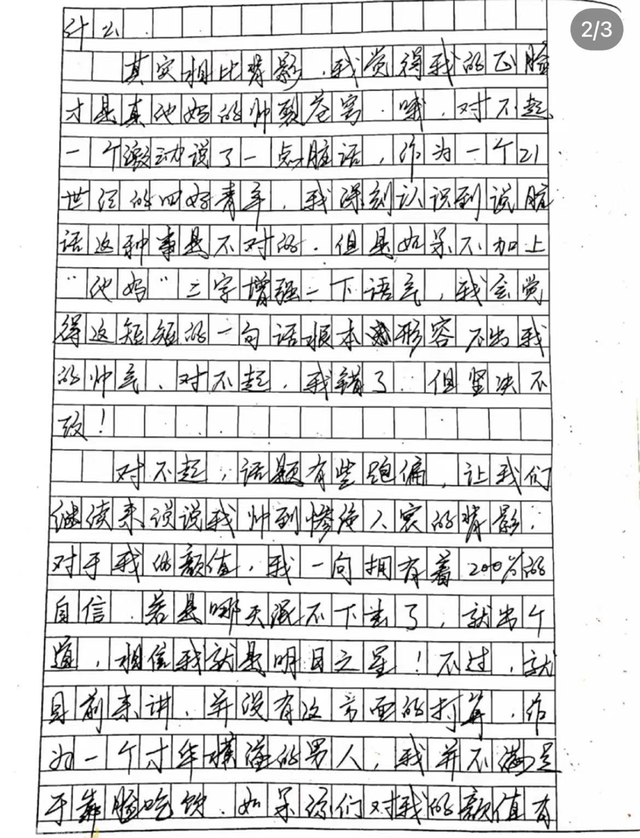 2/3
什么.
其实相比背影,我觉得我的正脸
才是真他妈的帅裂苍穹.哦,对不起
一个激动说了一点脏话,作为一个21
世纪的四好青年,我深刻认识到说脏
话这种事是不对的.但是如果不加上
“他妈”二字增强一下语气,我会觉
得这短短的一句话根本形容不出我
的帅气,对不起,我错了.但坚决不
改!
对不起,话题有些跑偏,让我们
继续来说说我帅到惨绝人寰的背影.
对于我的颜值,我一向拥有着200%的
自信.若是哪天混不下去了,就出个
道,相信我就是明日之星!不过,就
目前来讲,并没有这方面的打算.作
为一个才华横溢的男人,我并不满足
于靠脸吃饭.如果你们对我的颜值有